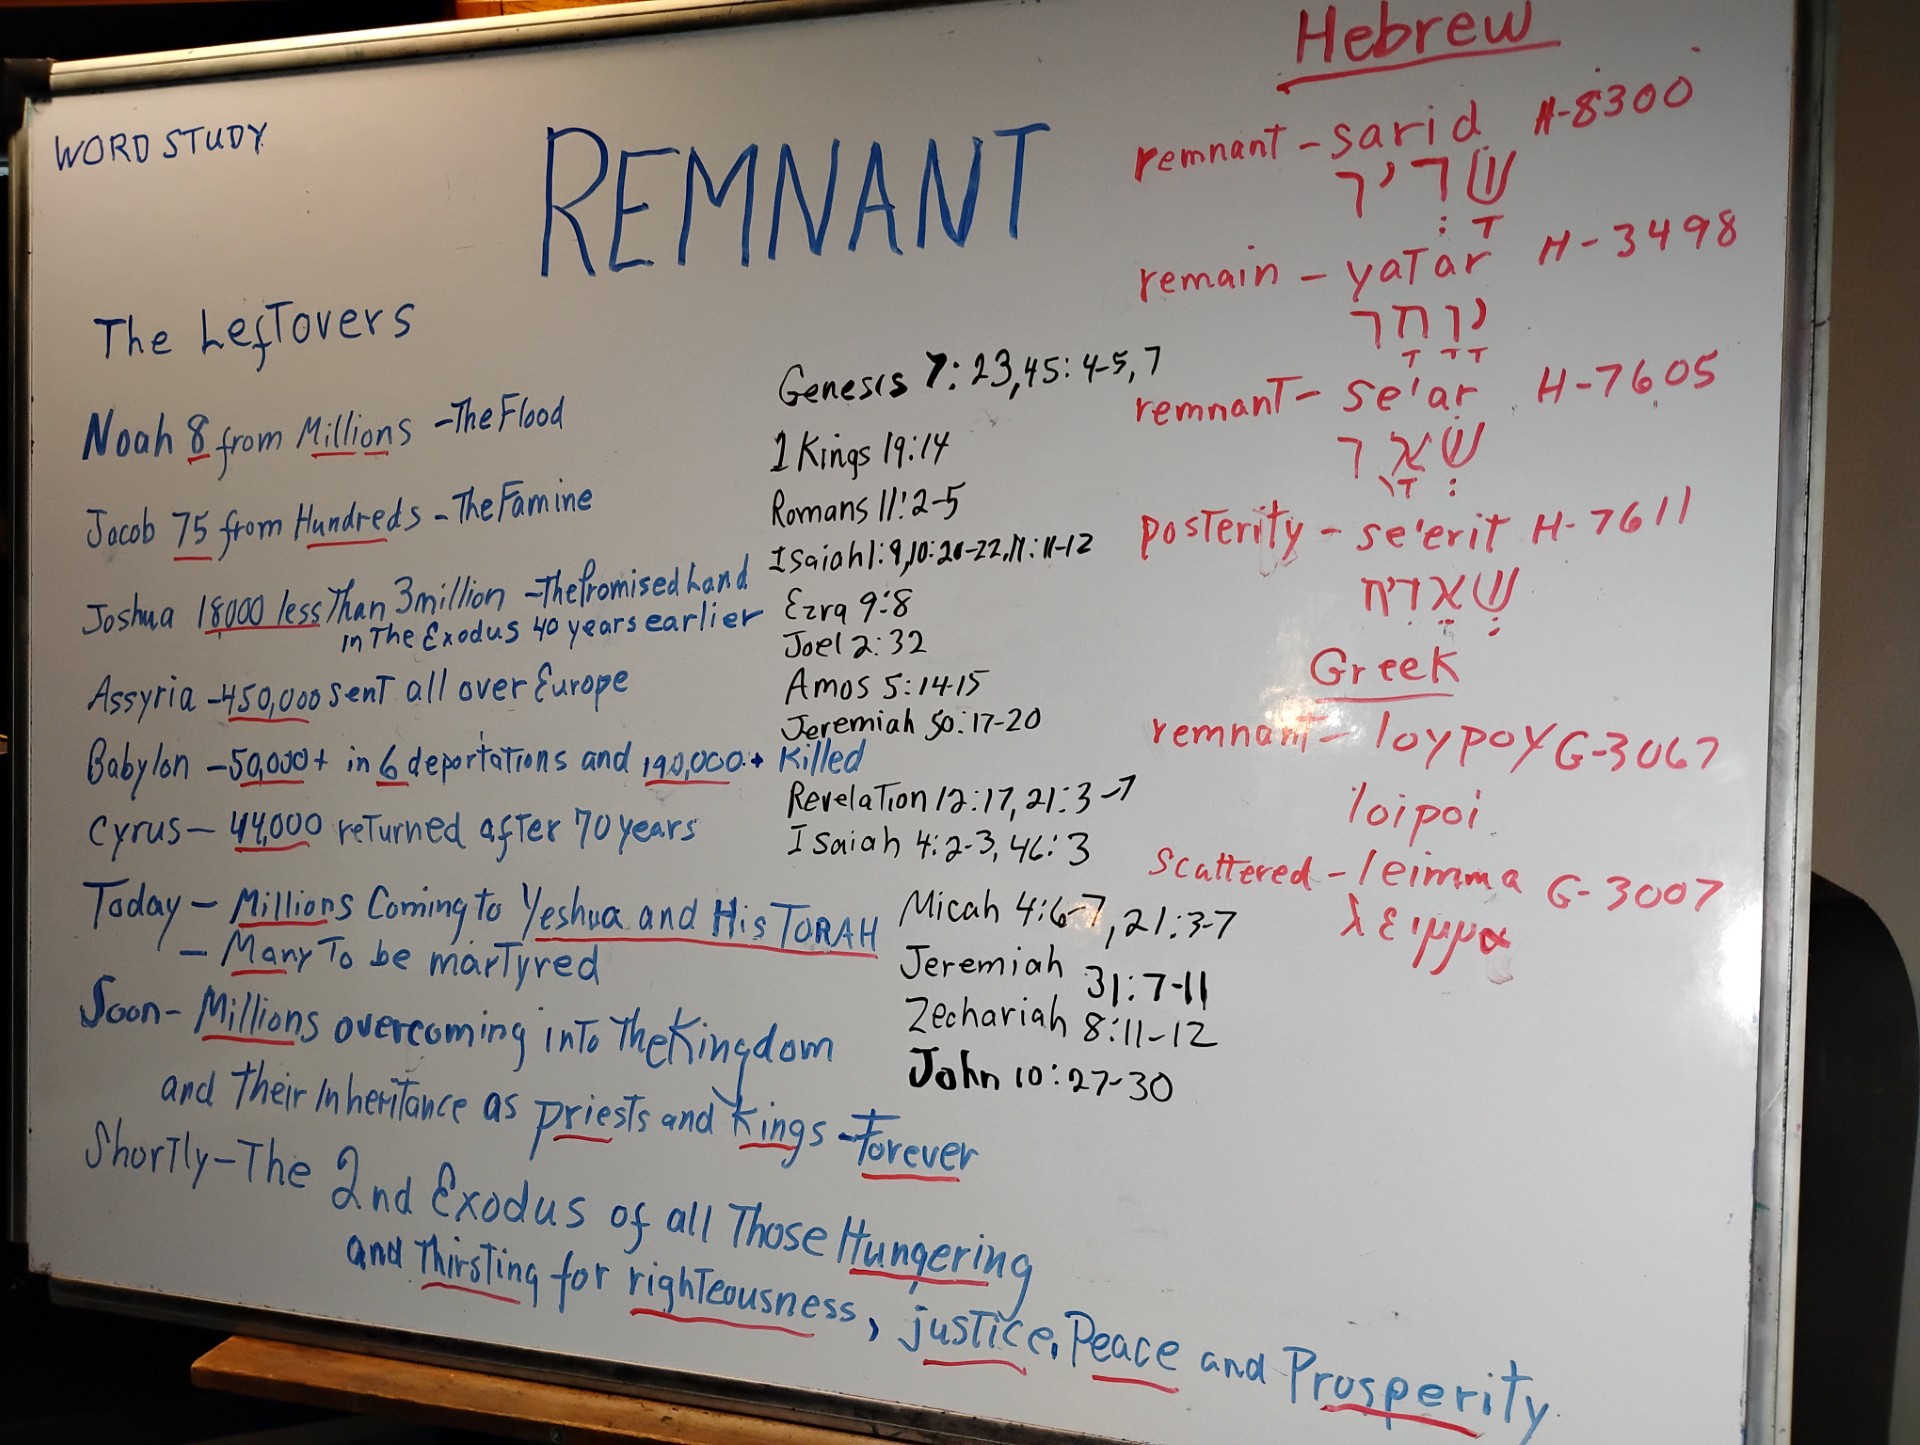 WORD STUDY
REMNANT
The Leftovers
Noah 8 from Millions - The Flood
Jacob 75 from Hundreds - The Famine
Joshua 18000 less Than 3 million - The Promised Land
in The Exodus 40 years earlier
Assyria - 450,000 sent all over Europe
Babylon - 50,000+ in 6 deportations and 190,000+ Killed
Cyrus - 44,000 returned after 70 years
Today - Millions Coming to Yeshua and His TORAH
- Many To be martyred
Soon - Millions overcoming into The Kingdom
and Their Inheritance as priests and Kings - Forever
Shortly - The 2nd Exodus of all Those Hungering
and Thirsting for righteousness, justice, Peace and Prosperity
Genesis 7:23, 45:4-5, 7
1 Kings 19:14
Romans 11:2-5
Isaiah 1:9, 10:20-22, 11:11-12
Ezra 9:8
Joel 2:32
Amos 5:14-15
Jeremiah 50:17-20
Revelation 12:17, 21:3-7
Isaiah 4:2-3, 46:3
Micah 4:6-7, 21:3-7
Jeremiah 31:7-11
Zechariah 8:11-12
John 10:27-30
Hebrew
remnant - sarid H-8300
remain - yatar H-3498
remnant - se'ar H-7605
posterity - se'erit H-7611
Greek
remnant - loypoy G-3067
loipoi
Scattered - leimma G-3007
λειμμα